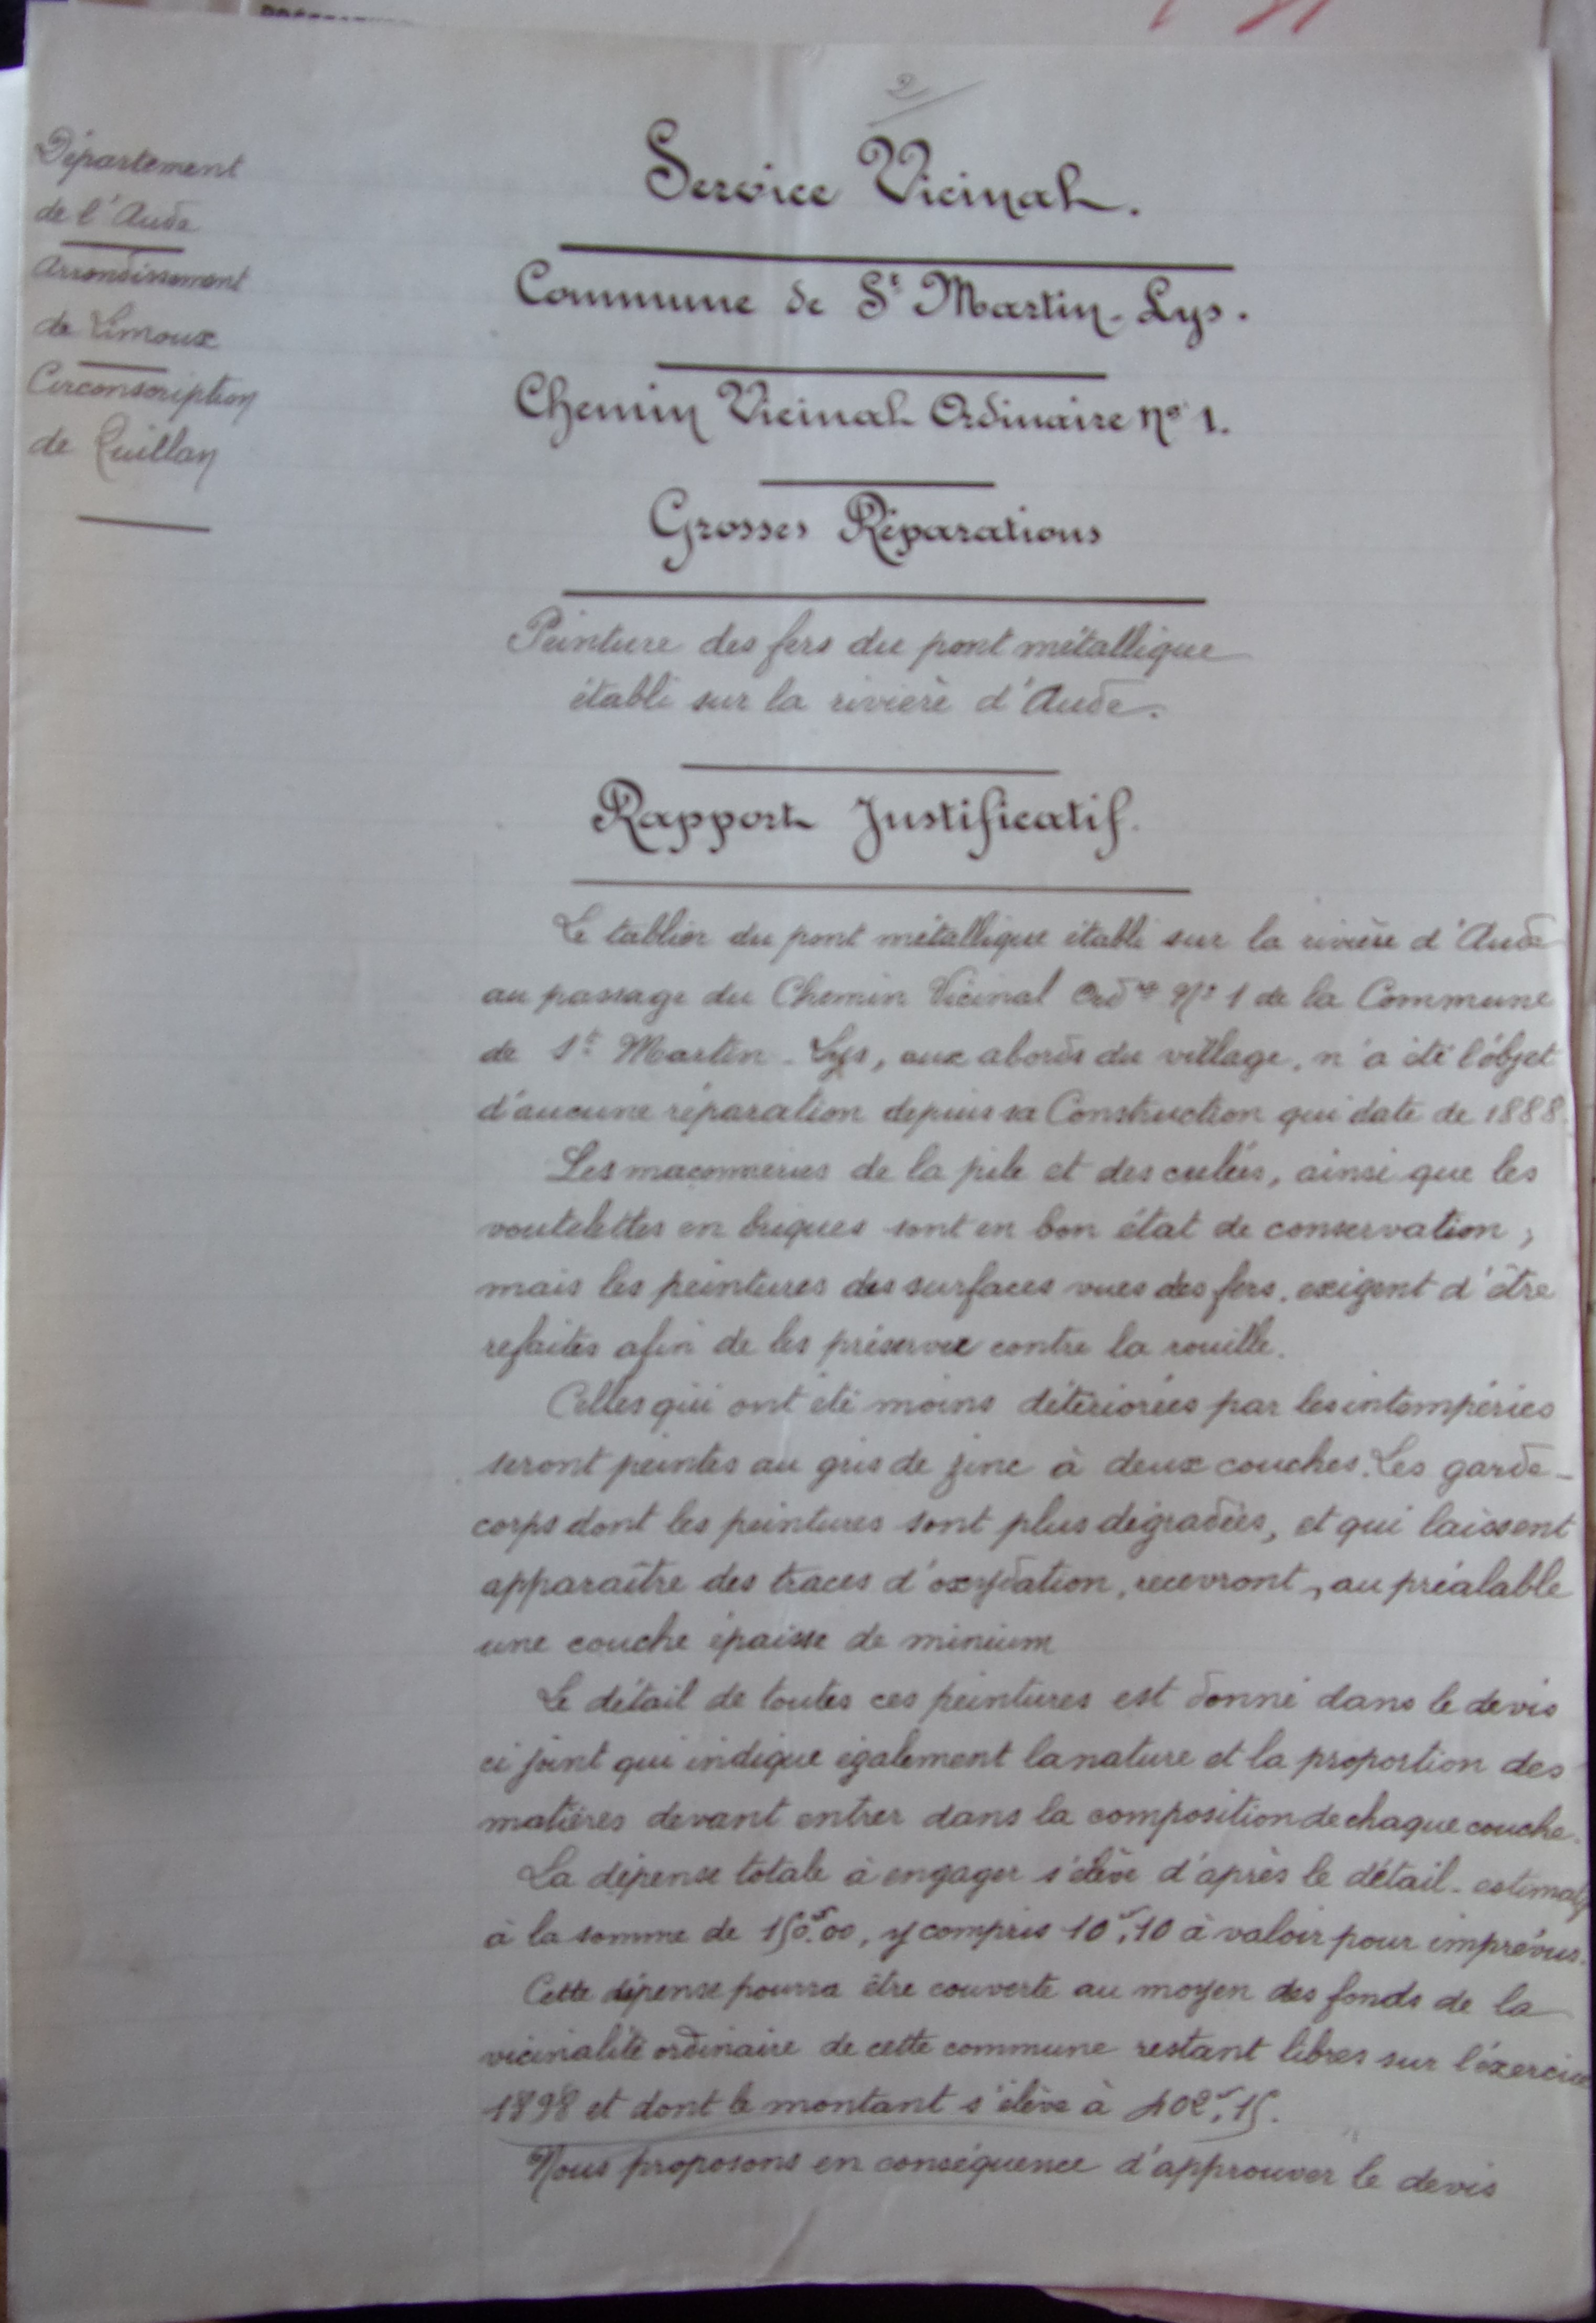 2
Département
de l'Aude
Arrondissement
de Limoux
Circonscription
de Quillan
Service Vicinal.
Commune de St Martin-Lys.
Chemin Vicinal Ordinaire No 1.
Grosses Réparations
Peinture des fers du pont métallique
établi sur la rivière d'Aude.
Rapport Justificatif.
Le tablier du pont métallique établi sur la rivière d'Aude
au passage du Chemin Vicinal Ordre No 1 de la Commune
de St Martin-Lys, aux abords du village, n'a été l'objet
d'aucune réparation depuis sa Construction qui date de 1888.
Les maçonneries de la pile et des culées, ainsi que les
voutelettes en briques sont en bon état de conservation,
mais les peintures des surfaces vues des fers, exigent d'être
refaites afin de les préserver contre la rouille.
Celles qui ont été moins détériorées par les intempéries
seront peintes au gris de zinc à deux couches. Les garde-
corps dont les peintures sont plus dégradées, et qui laissent
apparaître des traces d'oxydation, recevront, au préalable
une couche épaisse de minium
Le détail de toutes ces peintures est donné dans le devis
ci joint qui indique également la nature et la proportion des
matières devant entrer dans la composition de chaque couche.
La dépense totale à engager s'élève d'après le détail-estimatif
à la somme de 150f.00, y compris 10f,10 à valoir pour imprévus.
Cette dépense pourra être couverte au moyen des fonds de la
vicinalité ordinaire de cette commune restant libres sur l'éxercice
1898 et dont le montant s'élève à 402f,15.
Nous proposons en conséquence d'approuver le devis